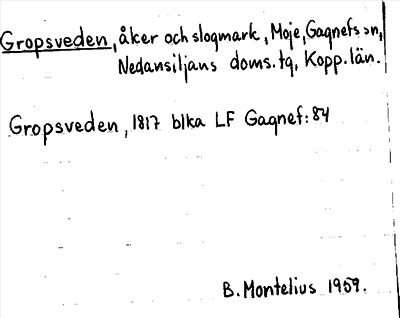 Gropsveden, åker och slogmark, Moje, Gagnefs sn,
Nedansiljans doms. tg, Kopp. län.
Gropsveden, 1817 blka LF Gagnef: 84
B. Montelius 1959.